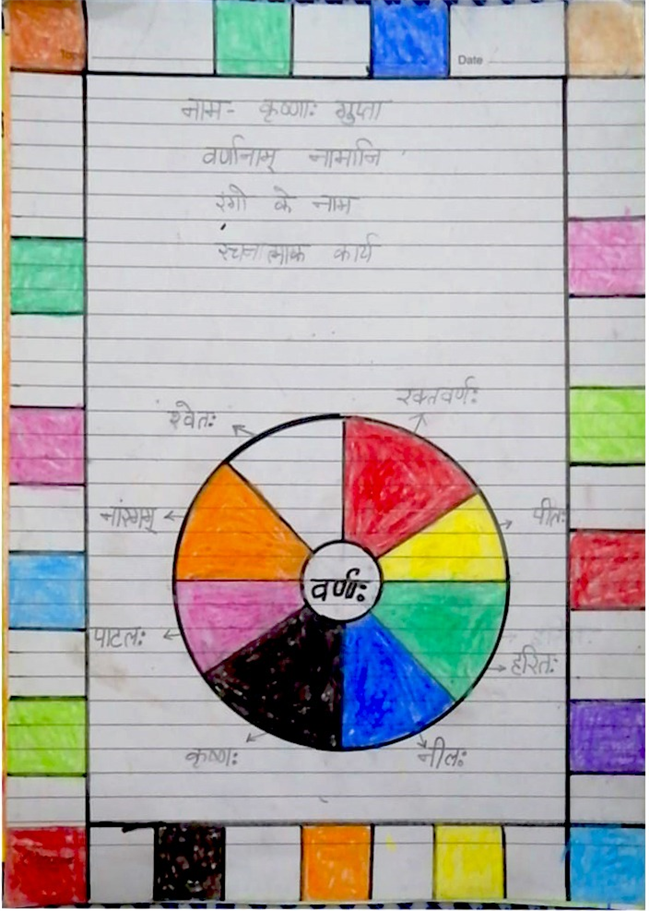 Date
नाम- कृष्णाः गुप्ता
वर्णानाम् नामानि
रंगो के नाम
रचनात्माक कार्य
रक्तवर्णः
श्वेतः
नांरगम्
पीतः
वर्णः
पाटलः
हरितः
कृष्णः
नीलः